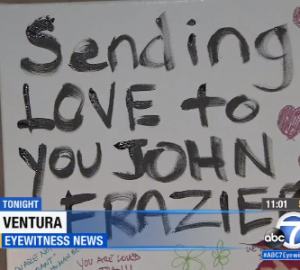 Sending
LOVE to
you JOHN
FRAZIER
TONIGHT
VENTURA
EYEWITNESS NEWS
11:01
abc 7
#ABC7Eyew
YOU ARE LOVED